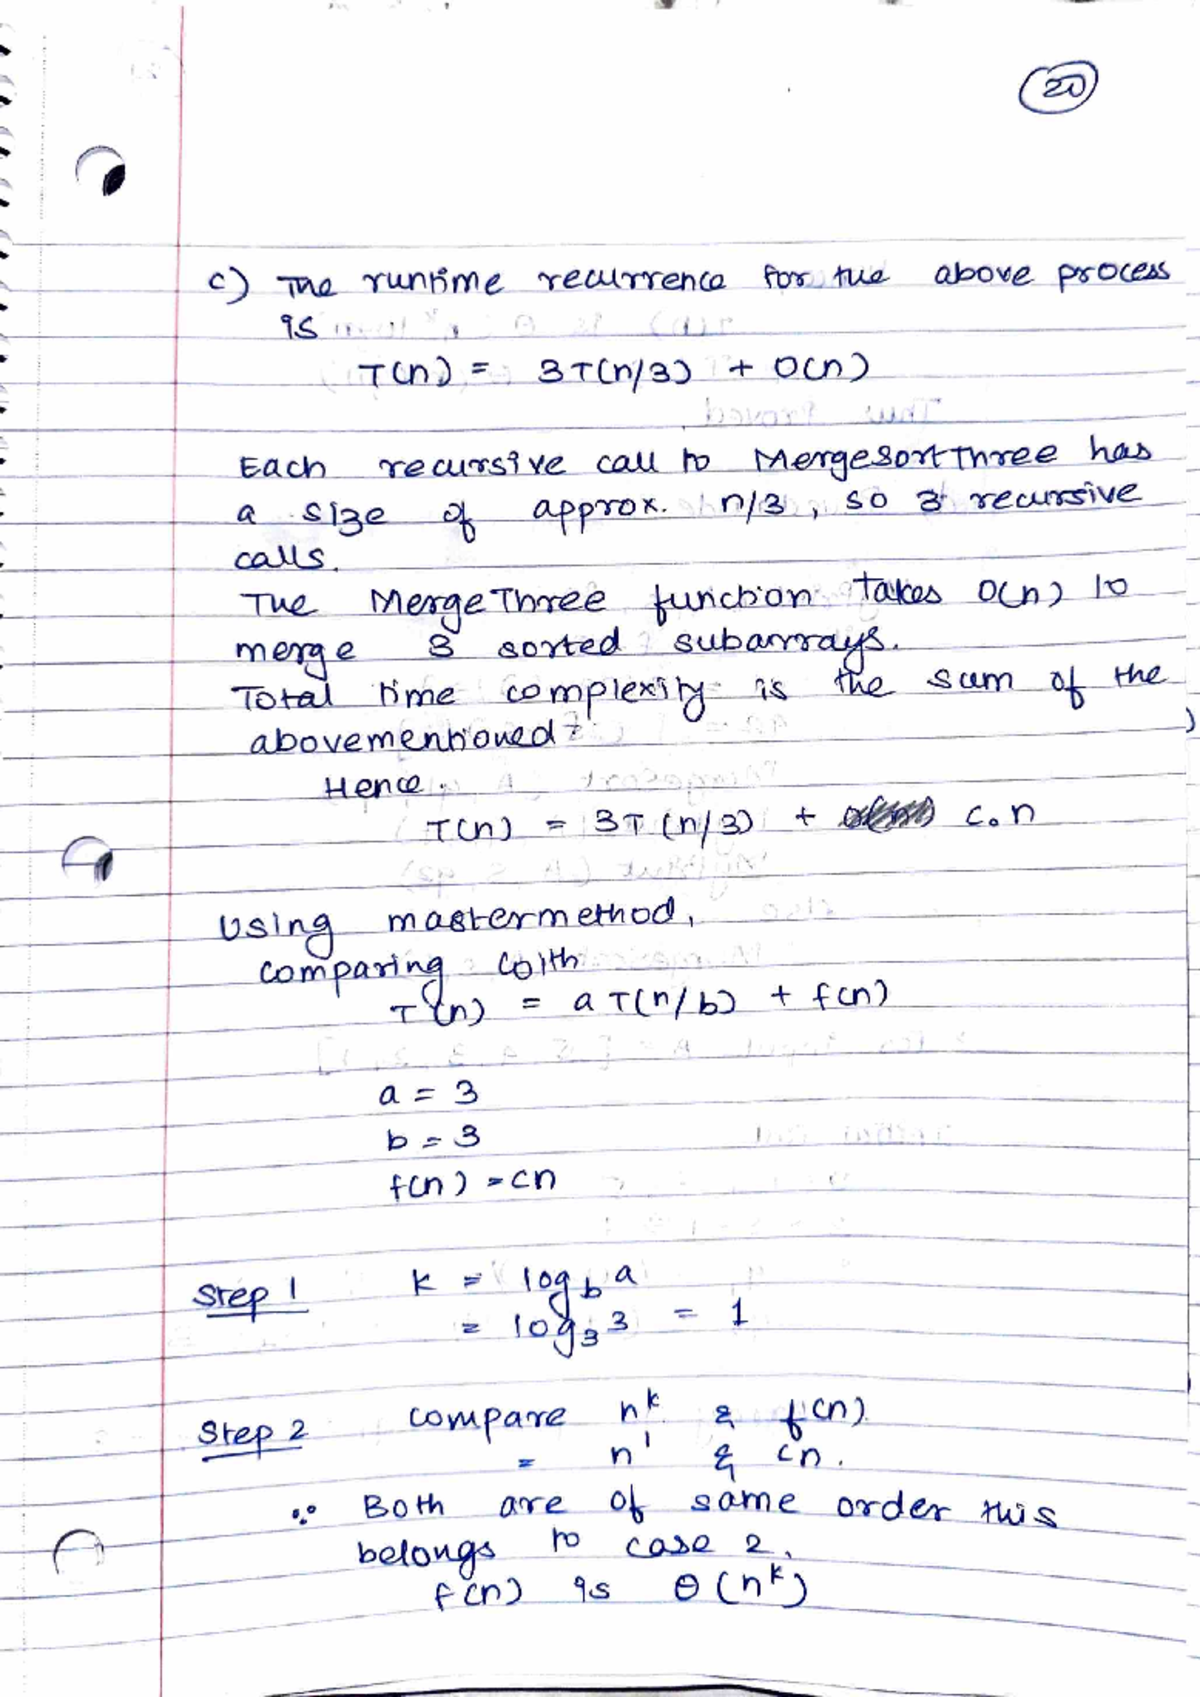 20
c) The runtime recurrence for the above process
is
T(n) = 3T(n/3) + O(n)
Each recursive call to MergesortThree has
a size of approx. n/3, so 3 recursive
calls.
The MergeThree function takes O(n) to
merge 3 sorted subarrays.
Total time complexity is the sum of the
abovementioned
Hence.
T(n) = 3T(n/3) + c.n
Using mastermethod,
comparing with
T(n) = aT(n/b) + f(n)
a = 3
b = 3
f(n) = cn
Step 1 k = log_b a
= log_3 3 = 1
Step 2 compare n^k & f(n)
= n^1 & cn.
∵ Both are of same order this
belongs to case 2.
f(n) is Θ(n^k)